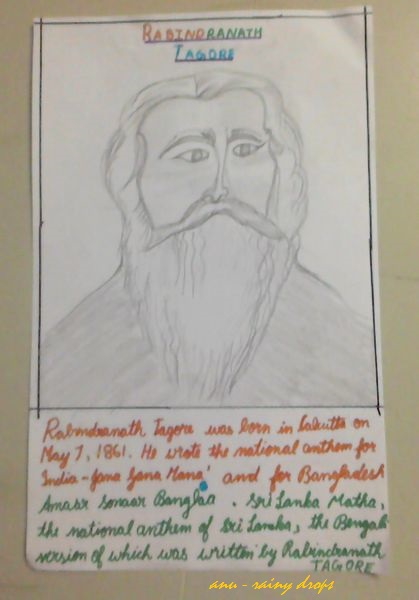 RABINDRANATH
TAGORE
Rabindranath Tagore was born in Calcutta on
May 7, 1861. He wrote the national anthem for
India - Jana Gana Mana' and for Bangladesh
Amaar Sonaar Banglaa . Sri Lanka Matha,
the national anthem of Sri Lanka, the Bengali
version of which was written by Rabindranath
TAGORE
anu - rainy drops